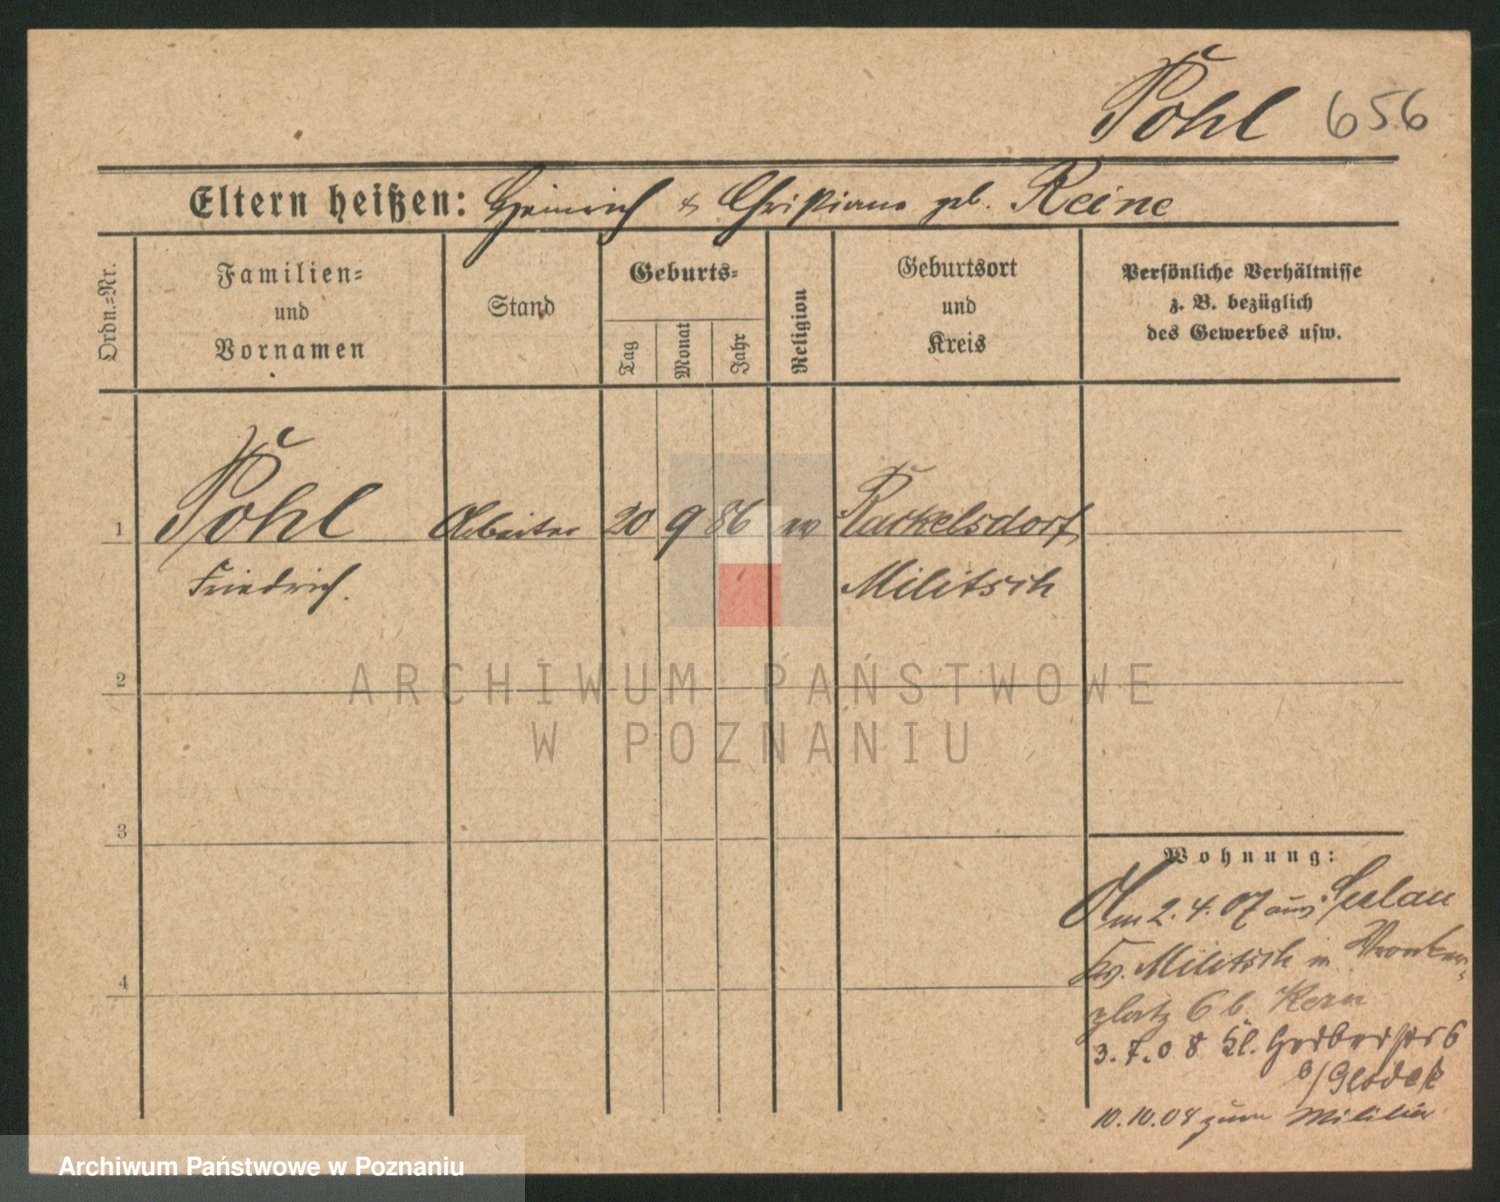 Pohl 656
Eltern heißen: Heinrich & Christiane geb. Reine
Ordn.-Nr.
Familien-
und
Vornamen
Stand
Geburts-
Tag
Monat
Jahr
Religion
Geburtsort
und
Kreis
Persönliche Verhältnisse
z. B. bezüglich
des Gewerbes usw.
1 Pohl Arbeiter 20 9 86 ev Rackelsdorf
Friedrich. Militsch
2
3
4
Wohnung:
Am 2.4.07 aus Sulau
Kr. Militsch n Wronker-
platz 6 b. Kern
3.7.08 Kl. Gerberstr 6
b/
10.10.08 zum Militär
ARCHIWUM PAŃSTWOWE
W POZNANIU
Archiwum Państwowe w Poznaniu